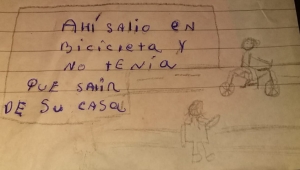 AHÍ SALIO EN
BICICRETA Y
NO TENÍA
QUE SALIR
DE SU CASA